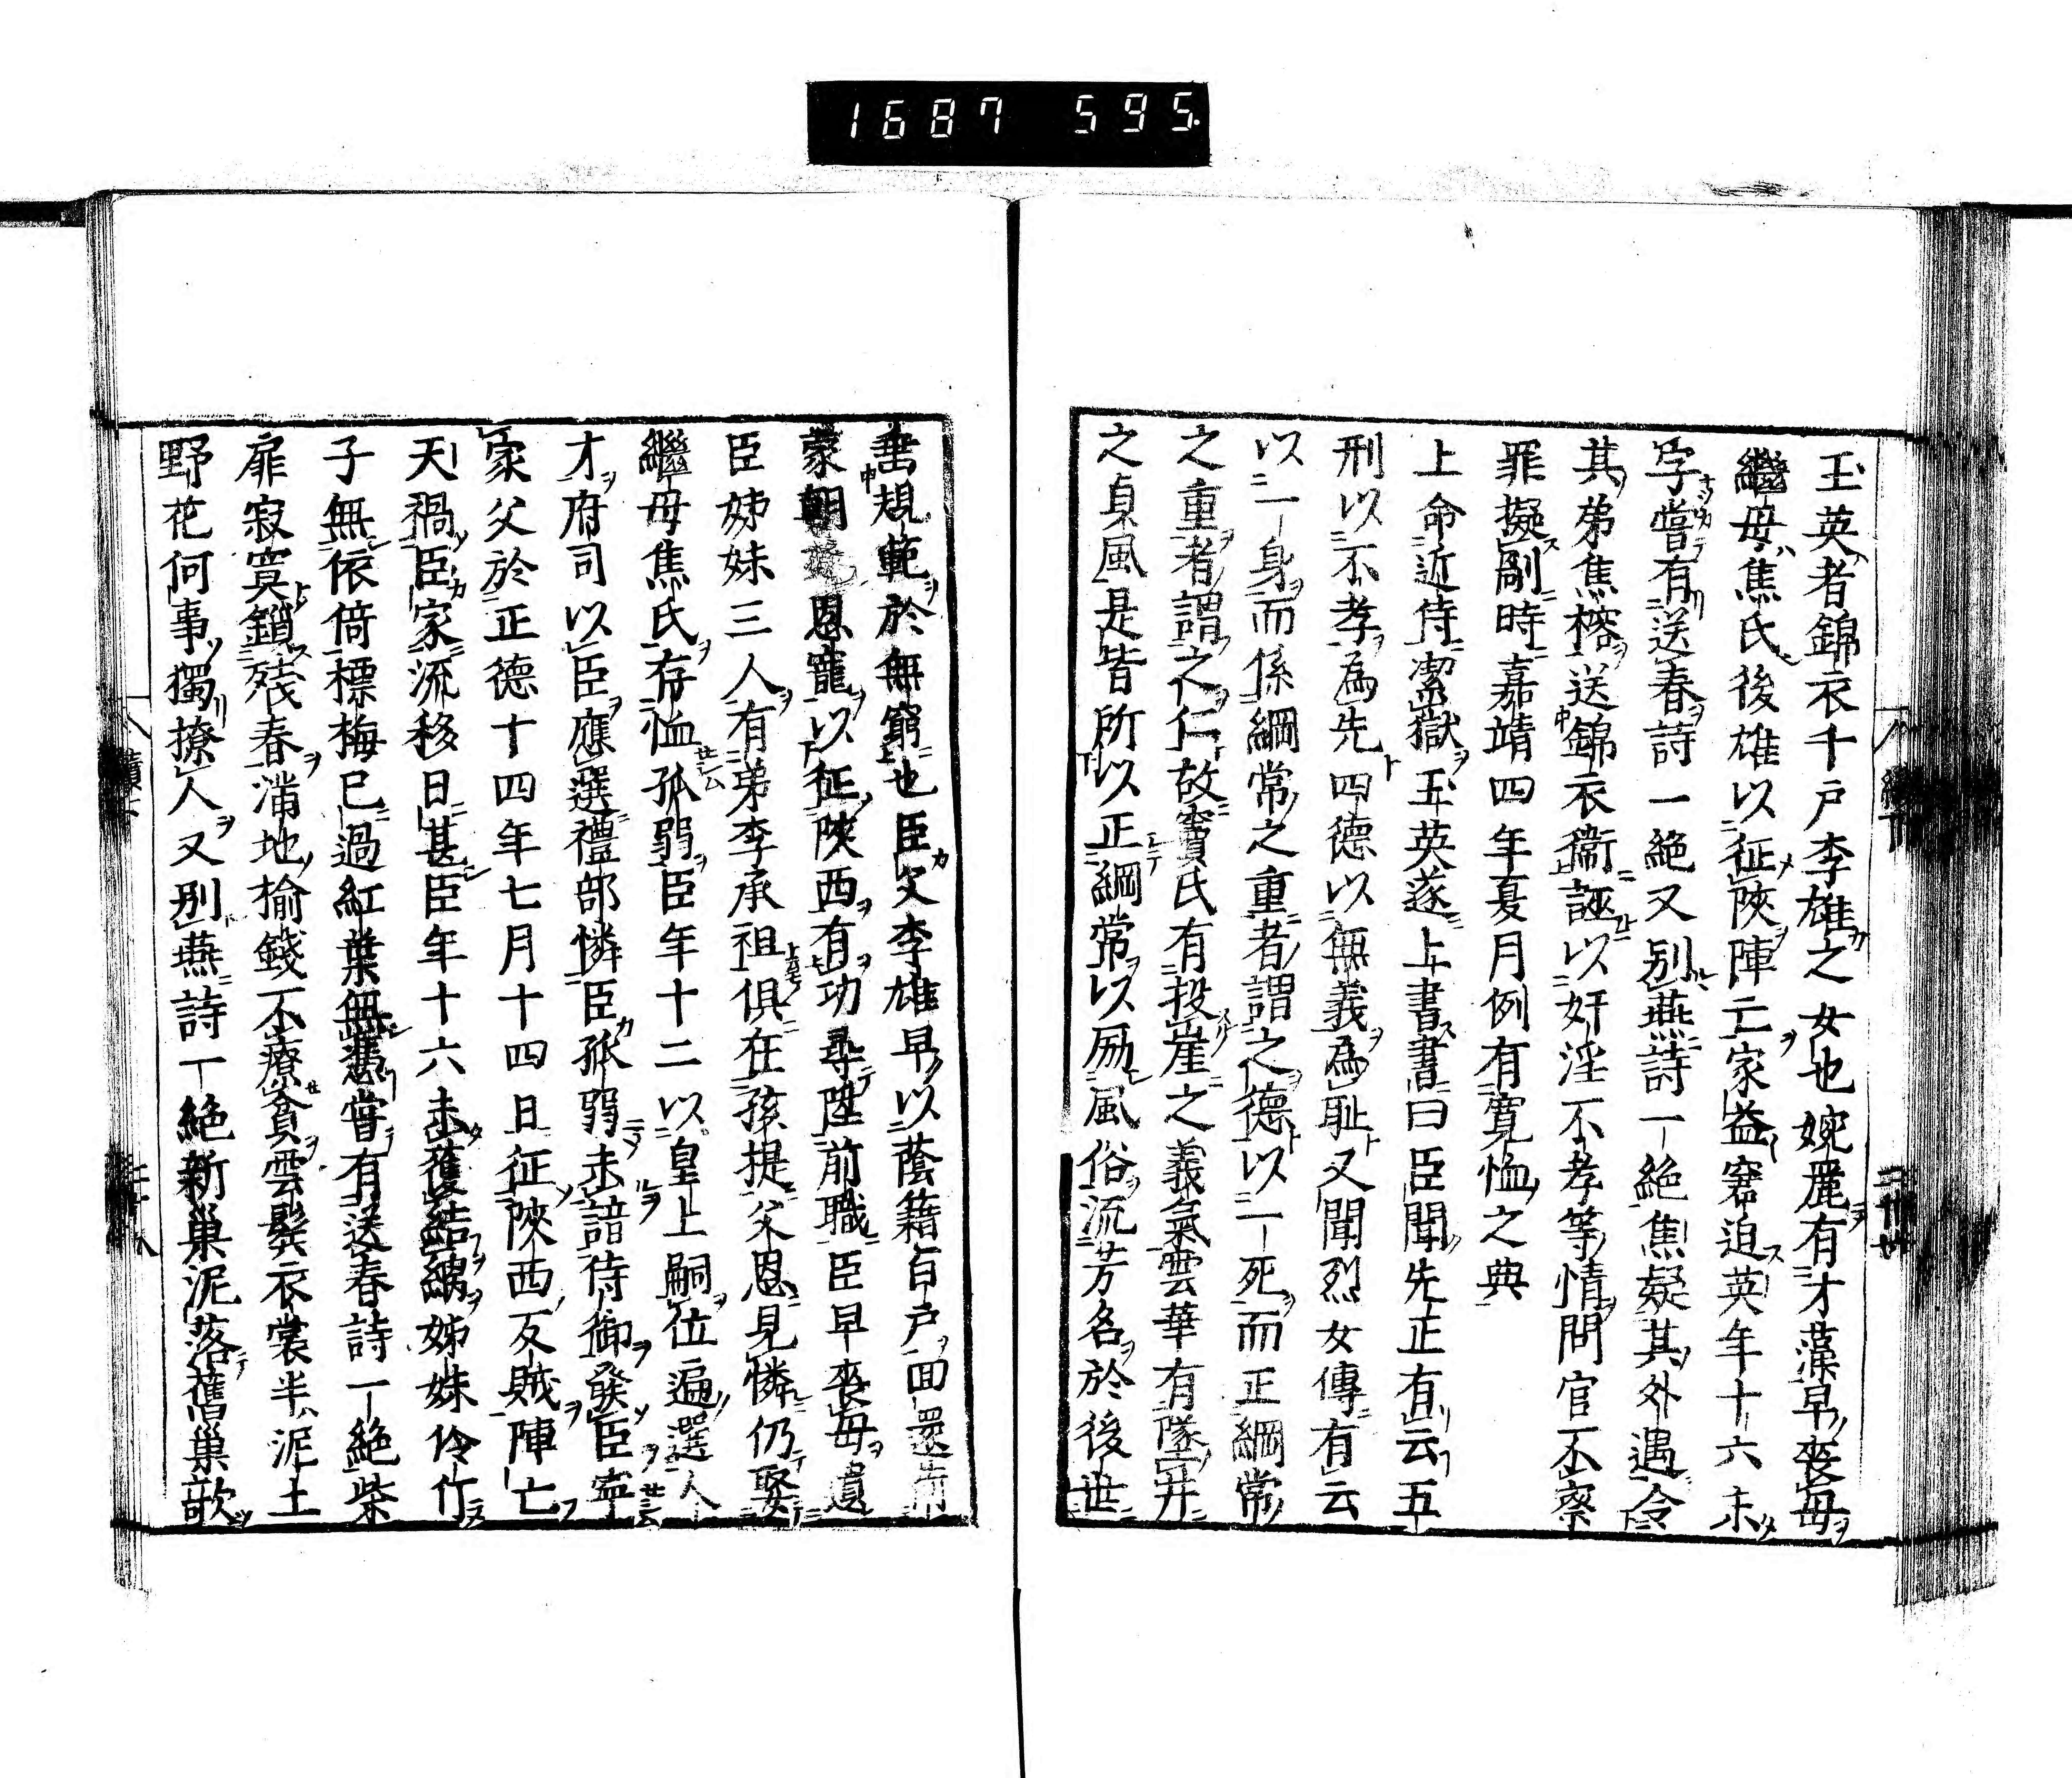 1687 595.
玉英者錦衣千戸李雄之女也婉麗有才藻早喪母
繼母焦氏後雄以征陝陣亡家益窘迫英年十六未
字嘗有送春詩一絶又別燕詩一絶焦疑其外遇令
其弟焦榕送錦衣衞誣以奸淫不孝等情問官不察
罪擬剮時嘉靖四年夏月例有寛恤之典
上命近侍潔獄玉英遂上書書曰臣聞先正有云五
刑以不孝為先四德以無義為耻又聞烈女傳有云
以一身而係綱常之重者謂之德以一死而正綱常
之重者謂之仁故竇氏有投崖之義氣雲華有墜井
之貞風是皆所以正綱常以励風俗流芳名於後世
垂規範於無窮也臣父李雄早以蔭籍百戸
蒙朝恩寵以征陝西有功尋陞前職臣早喪母遺
臣姊妹三人有弟李承祖俱在孩提父恩見憐仍娶
繼母焦氏存恤孤弱臣年十二以皇上嗣位遍選人
才府司以臣應選禮部憐臣孤弱未諳侍御發臣寧
家父於正德十四年七月十四日征陝西反賊陣亡
天禍臣家流移日甚臣年十六未獲結縭姊妹伶仃
子無依倚標梅已過紅葉無憑嘗有送春詩一絶柴
扉寂寞鎖残春滿地榆錢不療貧雲鬓衣裳半泥土
野花何事獨撩人又別燕詩一絶新巢泥落舊巢歆